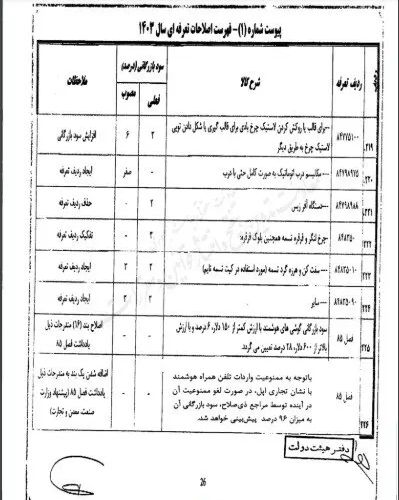 پیوست شماره (۱)- فهرست اصلاحات تعرفه ای سال ۱۴۰۳
ردیف
ردیف تعرفه
شرح کالا
سود بازرگانی (درصد)
فعلی
مصوب
ملاحظات
۲۱۹.
۸۴۷۷۵۱۰۰
---برای قالب یا روکش کردن لاستیک چرخ بادی برای قالب گیری یا شکل دادن تویی
لاستیک چرخ به طریق دیگر
۲
۶
افزایش سود بازرگانی
۲۲۰.
۸۴۷۹۸۹۷۵
---مکانیسم درب اتوماتیک به صورت کامل حتی با درب
-
صفر
ایجاد ردیف تعرفه
۲۲۱.
۸۴۷۹۸۹۸۸
---دستگاه آفر ریس
۲
-
حذف ردیف تعرفه
۲۲۲
۸۴۸۳۵۰
-چرخ لنگر و قرقره تسمه همچنین بلوک قرقره:
۲
-
تفکیک ردیف تعرفه
۲۲۳
۸۴۸۳۵۰۱۰
--- سفت کن و هرزه گرد تسمه (مورد استفاده در کیت تسمه تایم)
۲
۲
ایجاد ردیف تعرفه
۲۲۴
۸۴۸۳۵۰۹۰
--- سایر
۲
۲
ایجاد ردیف تعرفه
۲۲۵
فصل ۸۵
سود بازرگانی گوشی های هوشمند با ارزش کمتر از ۱۵۰ دلار، ۶ درصد و با ارزش
بالاتر از ۶۰۰ دلار، ۲۸ درصد تعیین می گردد.
-
-
اصلاح بند (۱۶) مندرجات ذیل
یادداشت فصل ۸۵
۲۲۶
فصل ۸۵
باتوجه به ممنوعیت واردات تلفن همراه هوشمند
با نشان تجاری اپل، در صورت لغو ممنوعیت آن
در آینده توسط مراجع ذی‌صلاح، سود بازرگانی آن
به میزان ۹۶ درصد پیش‌بینی خواهد شد.
-
-
اضافه شدن یک بند به مندرجات ذیل
یادداشت فصل ۸۵ (پیشنهاد وزارت
صنعت، معدن و تجارت)
دفتر هیئت دولت
26